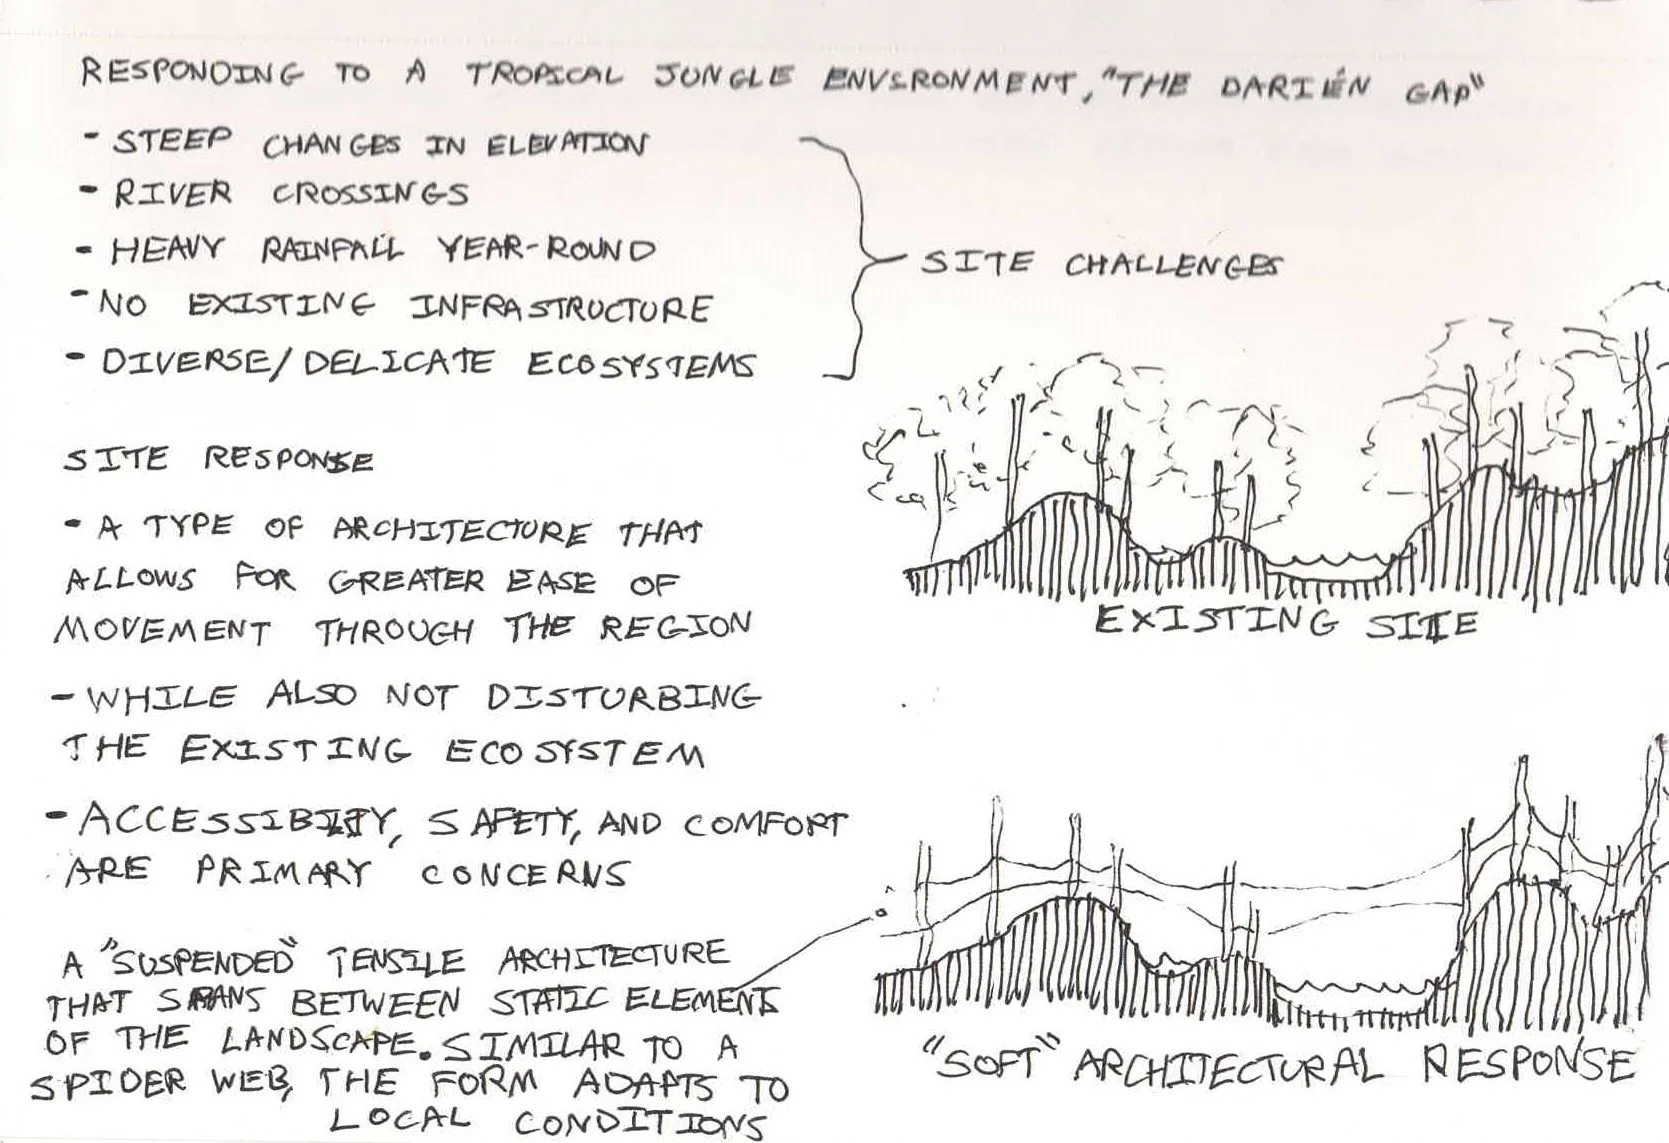 RESPONDING TO A TROPICAL JUNGLE ENVIRONMENT, "THE DARIÉN GAP"
- STEEP CHANGES IN ELEVATION
- RIVER CROSSINGS
- HEAVY RAINFALL YEAR-ROUND
- NO EXISTING INFRASTRUCTURE
- DIVERSE/DELICATE ECOSYSTEMS
SITE CHALLENGES
EXISTING SITE
SITE RESPONSE
- A TYPE OF ARCHITECTURE THAT
ALLOWS FOR GREATER EASE OF
MOVEMENT THROUGH THE REGION
- WHILE ALSO NOT DISTURBING
THE EXISTING ECOSYSTEM
- ACCESSIBILITY, SAFETY, AND COMFORT
ARE PRIMARY CONCERNS
A "SUSPENDED" TENSILE ARCHITECTURE
THAT SPANS BETWEEN STATIC ELEMENTS
OF THE LANDSCAPE. SIMILAR TO A
SPIDER WEB, THE FORM ADAPTS TO
LOCAL CONDITIONS
"SOFT" ARCHITECTURAL RESPONSE